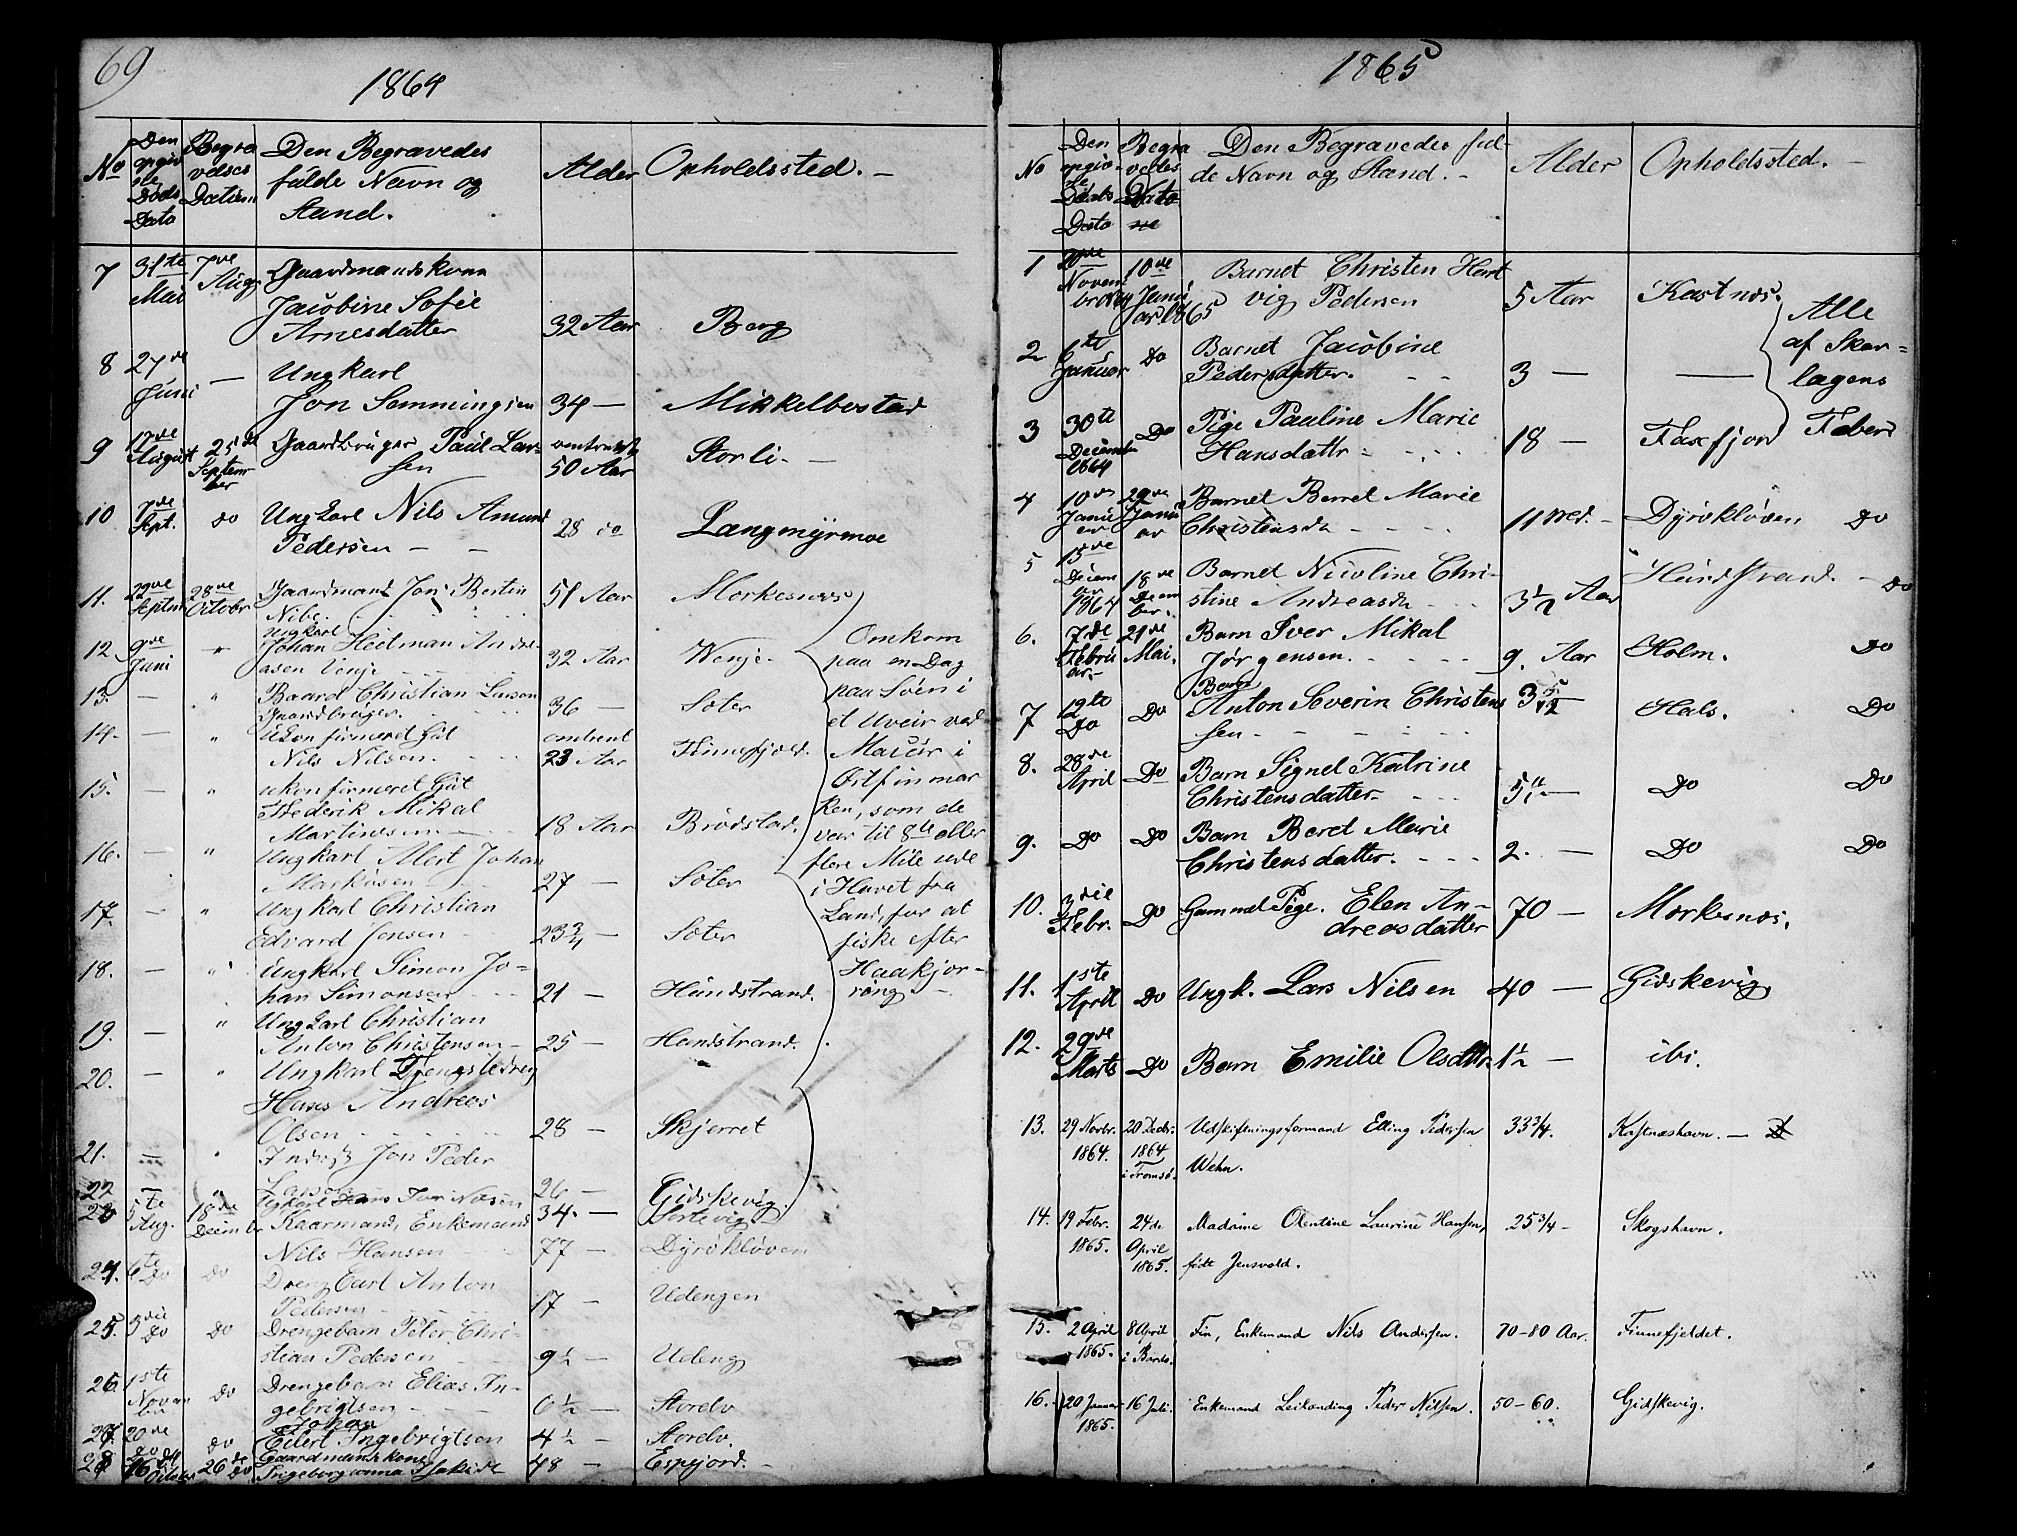 69
1864
No
Den
opgiv
ne
Døds
Dato
Begra
velses
Datum
Den Begravedes
fulde Navn og
Stand.
Alder
Opholdssted. -
7 31te Mai 7de Aug Gaardmandskone
Jacobine Sofie
Arnesdatter 32 Aar Berg
8 27de Juni — Ungkarl
Jon Sammingsen 34 — Mikkelbostad
9 17de August 25de September Gaardbruger Paul Lar-
sen omtrent 50 Aar Storli. -
10 7de Sept. do Ungkarl Nils Amund
Pedersen - - 28 do Langmyrmoe
11. 22de Septbr 28de Octobr Gaardmand Jon Bertin
Nibe. 51 Aar Morkesnæs
12. 9de Juni " Ungkarl
Johan Heetman Andre-
asen Venje 32 Aar Wenje.
13. — " Baard Christian Larsen
Gaardbruger. 36 — Søter
14. — " Ukonfirmeret Gut
Nils Nilsen. omtrent 23 Aar Finnefjeld.
15. — " ukonfirmeret Gut
Frederik Mikal
Martinesen 18 Aar Brødstad.
16. — " Ungkarl Alert Johan
Markusen 27 — Søter
17. — " Ungkarl Christian
Edvard Jensen 23 3/4 — Søter
18. — " Ungkarl Simon Jo-
han Simonsen 21 — Hundstrand.
19. — " Ungkarl Christian
Anton Christensen 25 — Hundstrand.
20. — " Ungkarl
Hans Andreas
Olsen 28 — Skjerret
21. — " Jon Peder
Larsen 26 — Gidskevig.
Omkom
paa en Dag
paa Søen i
et Uveir ved
Masür i
Østfinmar
ken, som de
var til 8te eller
flere Mile ude
i Havet fra
Land, for at
fiske efter
Haakjør-
ring -
22 — " Ungkarl 34. — Sortevig
23 5te Aug. 18de Decimbr Kaarmand, Enkemand
Nils Hansen 77 — Dyrøkløven
24. 6te Do do Dreng Carl Anton
Pedersen 17 — Udengen
25. 3die Do Do Drengebarn Peter Chri-
stian Pedersen 9 1/2 — Udeng
26 1ste Novem ber do Drengebarn Elias In-
gebrigtsen 6 1/2 — Storelv
27 20de do do Johan
Eilert Ingebrigtsen 4 1/2 — Storelv.
28 16de 26de do Gaardmandskone
Ingeborganna 48 — Espejord. -
1865
No
Den
opgiv
ne
Døds
Dato
Begra
velses
Dato
ne
Den Begravedes ful-
de Navn og Stand. -
Alder
Opholdssted. -
1 Novem br 1864 10de Janu ar 1865 Barnet Christen Hart
vig Pedersen 5 Aar Kastnæs.
2 6te Januar Do Barnet Jacobine
Pedersdatter. - - 3 — —
3 30te Decembr 1864 Do Pige Pauline Marie
Hansdattr - 18 — Faxfjord
Alle
af Skar-
lagens
Feber
4 10de Janu ar 29de Janu ar Barnet Berret Marie
Christensdr - - - - 11 Med. - Dyrøkløven Do
5 15de Decem ber 1864 18de Decem ber. Barnet Nicoline Chri-
stine Andreasdr 3 1/2 Aar Hundstrand. - Do
6. 7de Febru ar. - 21de Mai. Barn Iver Mikal
Jørgensen. 9. Aar Holm. Do
7 12te Do Do Barn
Anton Severin Christen
sen - - - 3 5/12 — Hals. Do
8. 28de April Do Barn Signel Katrine
Christensdatter. 5 — Do Do
9. Do Do Barn Beret Marie
Christensdatter. - - - 2. — Do Do
10. 3die Febr. Do Gammel Pige. Elen An-
dreasdatter 70 — Morkesnæs.
11. 1ste April Do Ungk. Lars Nilsen 40 — Gidskevig
12. 29de Marts Do Barn Emilie Olsdttr 1 1/2 — ibi.
13. 29 Novbr. 1864. 20 Decbr. 1864 i Tromsø. Udskiftningsformand Elling Pedersen
Wehn. 33 3/4. Kastnæshavn. —
14. 19 Febr. 1865. 24de April 1865. Madame Olentine Laurine Hansen,
født Jensvold. 25 3/4 - Skogshavn.
15. 2 April 1865. 8 April i Bardo. Fin, Enkemand Nils Andersen. 70-80 Aar. Finnefjeldet.
16. 20 Januar 1865. 16 Juli. Enkemand Leilænding Peder Nilsen. 50-60. Gidskevig.